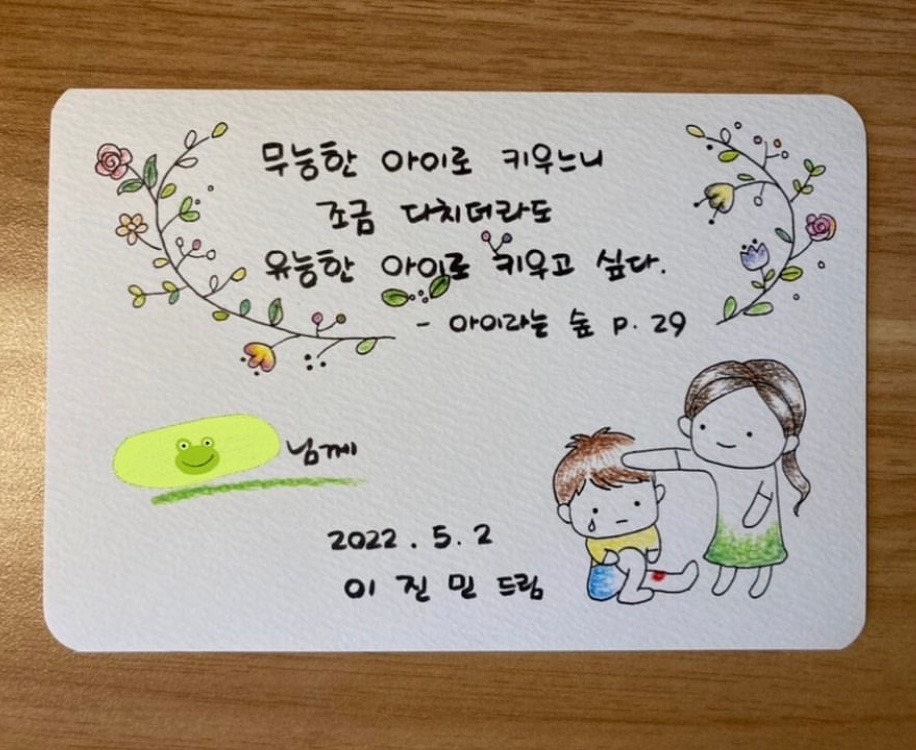 무능한 아이로 키우느니
조금 다치더라도
유능한 아이로 키우고 싶다.
- 아이라는 숲 p. 29
님께
2022. 5. 2
이 진 민 드림